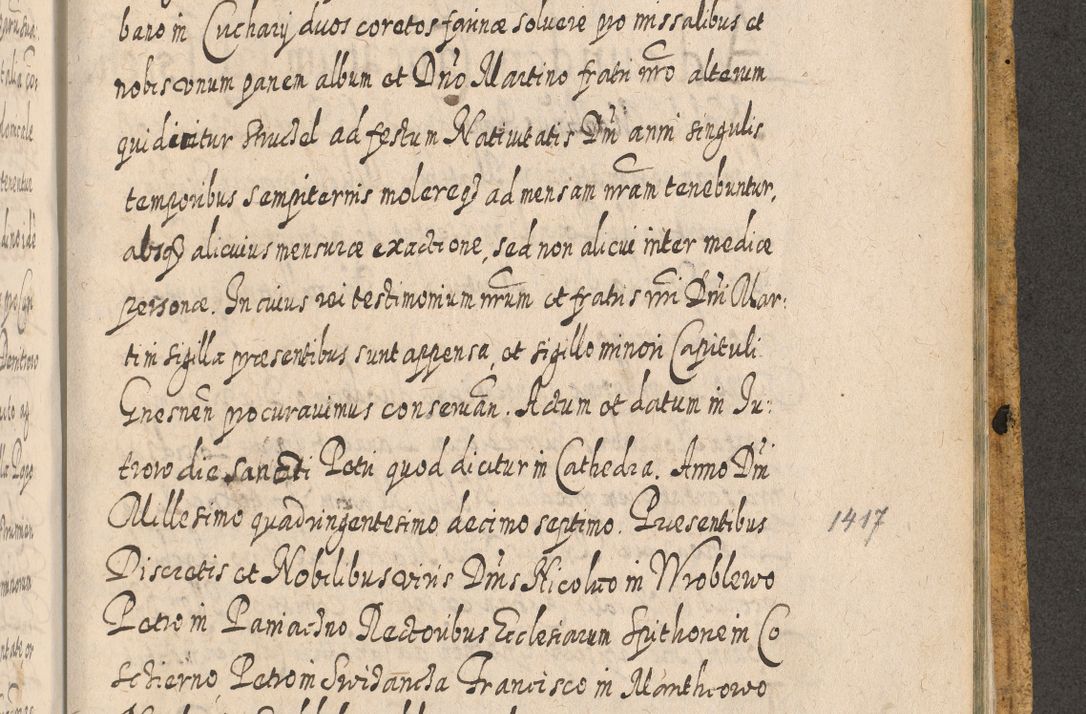 bano in Cuchary duos coretos farinæ solvere pro missalibus et
nobis vnum panem album et Dn̄o Martino fratri nr̄o alterum
qui dicitur Struchel ad festum Nativitatis Dn̄i anni singulis
temporibus sempiternis molereq3 ad mensam nr̄am tenebuntur,
absq3 alicuius mensuræ exactione, sed non alicui inter mediæ
personæ. In cuius rei testimonium nr̄um et fratris nr̄i Dn̄i Mar:
tini sigilla præsentibus sunt appensa, et sigillo minori Capituli
Gnesnēn procuravimus conservān. Actum et datum in Ju:
trowo die sancti Petri quod dicitur in Cathedra. Anno Dn̄i
Millesimo quadringentesimo decimo septimo. Præsentibus 1417
Discretis et Nobilibus viris Dn̄is Nicolao in Wroblewo
Petro in Pamachno Rectoribus Ecclesiarum Spithone in Co
schierno, Petro in Swidancha Francisco in Mantheowo